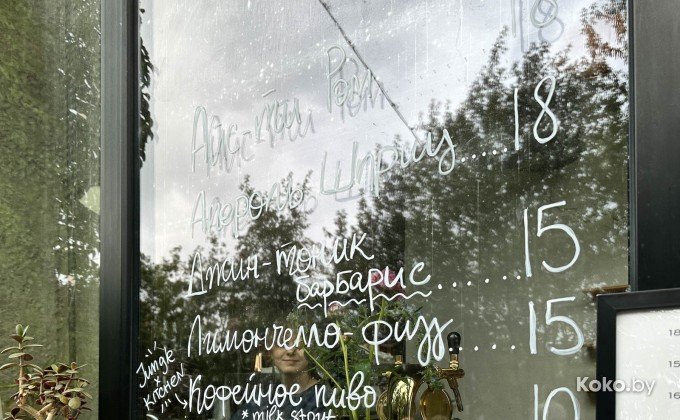 18
Айс ти Ром
Апероль Шприц.... 18
Джин-тоник
барбарис...... 15
Лимончелло-физз... 15
Jungle
x
KITCHEN
Кофейное пиво
* milk stout
10
18
15
15
Koko.by